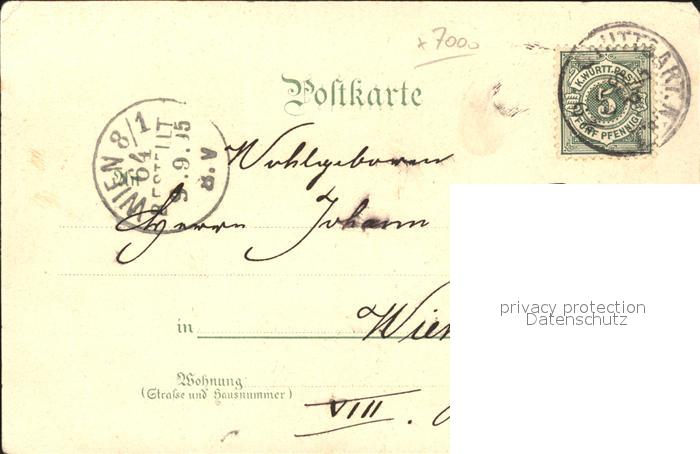 x 7000
STUTTGART
K.WÜRTT.POST
5
FÜNF PFENNIG
Postkarte
WIEN 8/1
64
BESTELLT
9.9.95
8.V
Wohlgeboren
Herrn Johann
privacy protection
Datenschutz
in Wien
Wohnung
(Straſse und Hausnummer)
VIII.